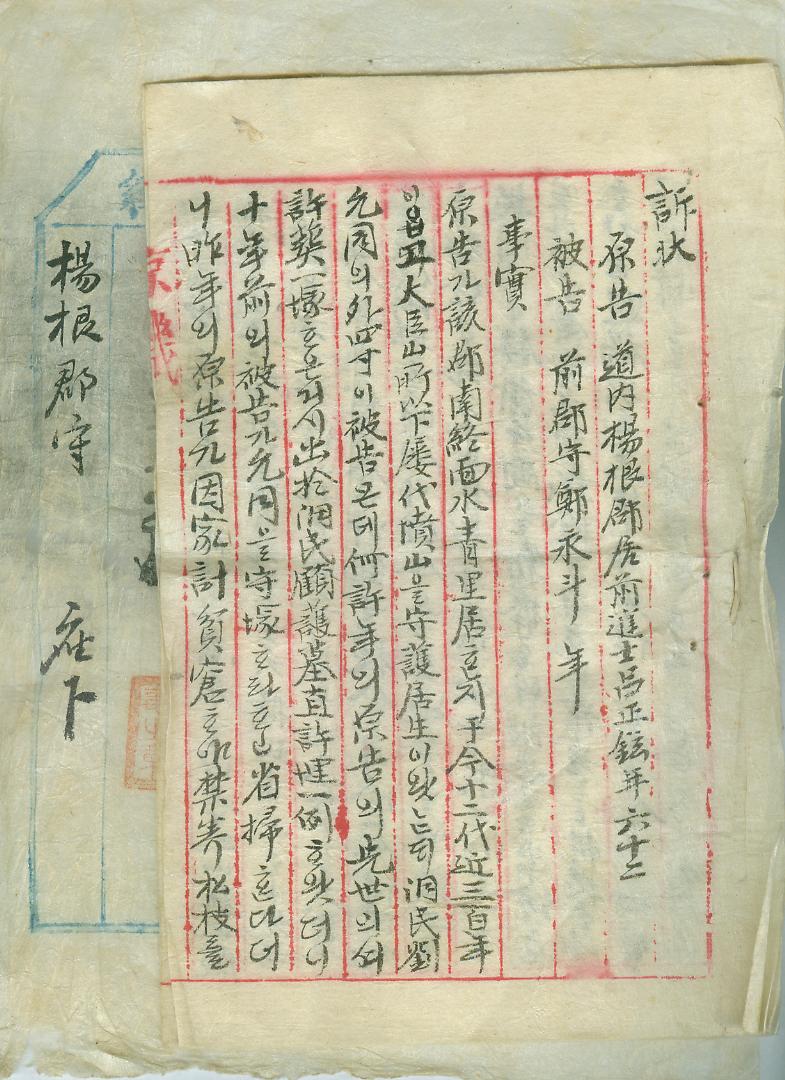 訴狀
原告 道內楊根郡居前進士呂正鉉年六十二
被告 前郡守鄭永斗 年
事實
原告가該郡南終面水靑里居혼지于今十二代近三百年
이읍고大臣山所以下屢代墳山을守護居生이압는디洞民劉
允同의外四寸이被告온데何許年의原告의先世의셔
許葬一塚호온거시出於洞民顧護墓直許埋一例호왓더니
十年前의被告가允同을守塚호라호고省掃혼다더
니昨年의原告가因家計貧窘호야禁養松枝를
楊根郡守
座下